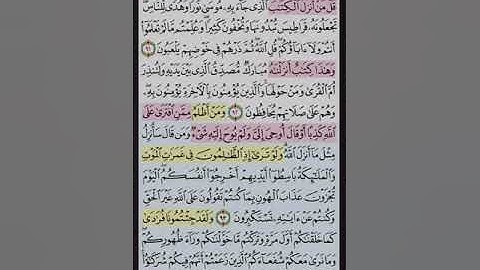 قُلْ مَنْ أَنزَلَ ٱلْكِتَٰبَ ٱلَّذِى جَآءَ بِهِۦ مُوسَىٰ نُورًا وَهُدًى لِّلنَّاسِ
تَجْعَلُونَهُۥ قَرَاطِيسَ تُبْدُونَهَا وَتُخْفُونَ كَثِيرًا وَعُلِّمْتُم مَّا لَمْ تَعْلَمُوٓا۟
أَنتُمْ وَلَآ ءَابَآؤُكُمْ قُلِ ٱللَّهُ ثُمَّ ذَرْهُمْ فِى خَوْضِهِمْ يَلْعَبُونَ ٩١
وَهَٰذَا كِتَٰبٌ أَنزَلْنَٰهُ مُبَارَكٌ مُّصَدِّقُ ٱلَّذِى بَيْنَ يَدَيْهِ وَلِتُنذِرَ
أُمَّ ٱلْقُرَىٰ وَمَنْ حَوْلَهَا وَٱلَّذِينَ يُؤْمِنُونَ بِٱلْءَاخِرَةِ يُؤْمِنُونَ بِهِۦ
وَهُمْ عَلَىٰ صَلَاتِهِمْ يُحَافِظُونَ ٩٢ وَمَنْ أَظْلَمُ مِمَّنِ ٱفْتَرَىٰ عَلَى
ٱللَّهِ كَذِبًا أَوْ قَالَ أُوحِىَ إِلَىَّ وَلَمْ يُوحَ إِلَيْهِ شَىْءٌ وَمَن قَالَ سَأُنزِلُ
مِثْلَ مَآ أَنزَلَ ٱللَّهُ وَلَوْ تَرَىٰٓ إِذِ ٱلظَّٰلِمُونَ فِى غَمَرَٰتِ ٱلْمَوْتِ
وَٱلْمَلَٰٓئِكَةُ بَاسِطُوٓا۟ أَيْدِيهِمْ أَخْرِجُوٓا۟ أَنفُسَكُمُ ٱلْيَوْمَ
تُجْزَوْنَ عَذَابَ ٱلْهُونِ بِمَا كُنتُمْ تَقُولُونَ عَلَى ٱللَّهِ غَيْرَ ٱلْحَقِّ
وَكُنتُمْ عَنْ ءَايَٰتِهِۦ تَسْتَكْبِرُونَ ٩٣ وَلَقَدْ جِئْتُمُونَا فُرَٰدَىٰ
كَمَا خَلَقْنَٰكُمْ أَوَّلَ مَرَّةٍ وَتَرَكْتُم مَّا خَوَّلْنَٰكُمْ وَرَآءَ ظُهُورِكُمْ
وَمَا نَرَىٰ مَعَكُمْ شُفَعَآءَكُمُ ٱلَّذِينَ زَعَمْتُمْ أَنَّهُمْ فِيكُمْ شُرَكَٰٓؤُا۟